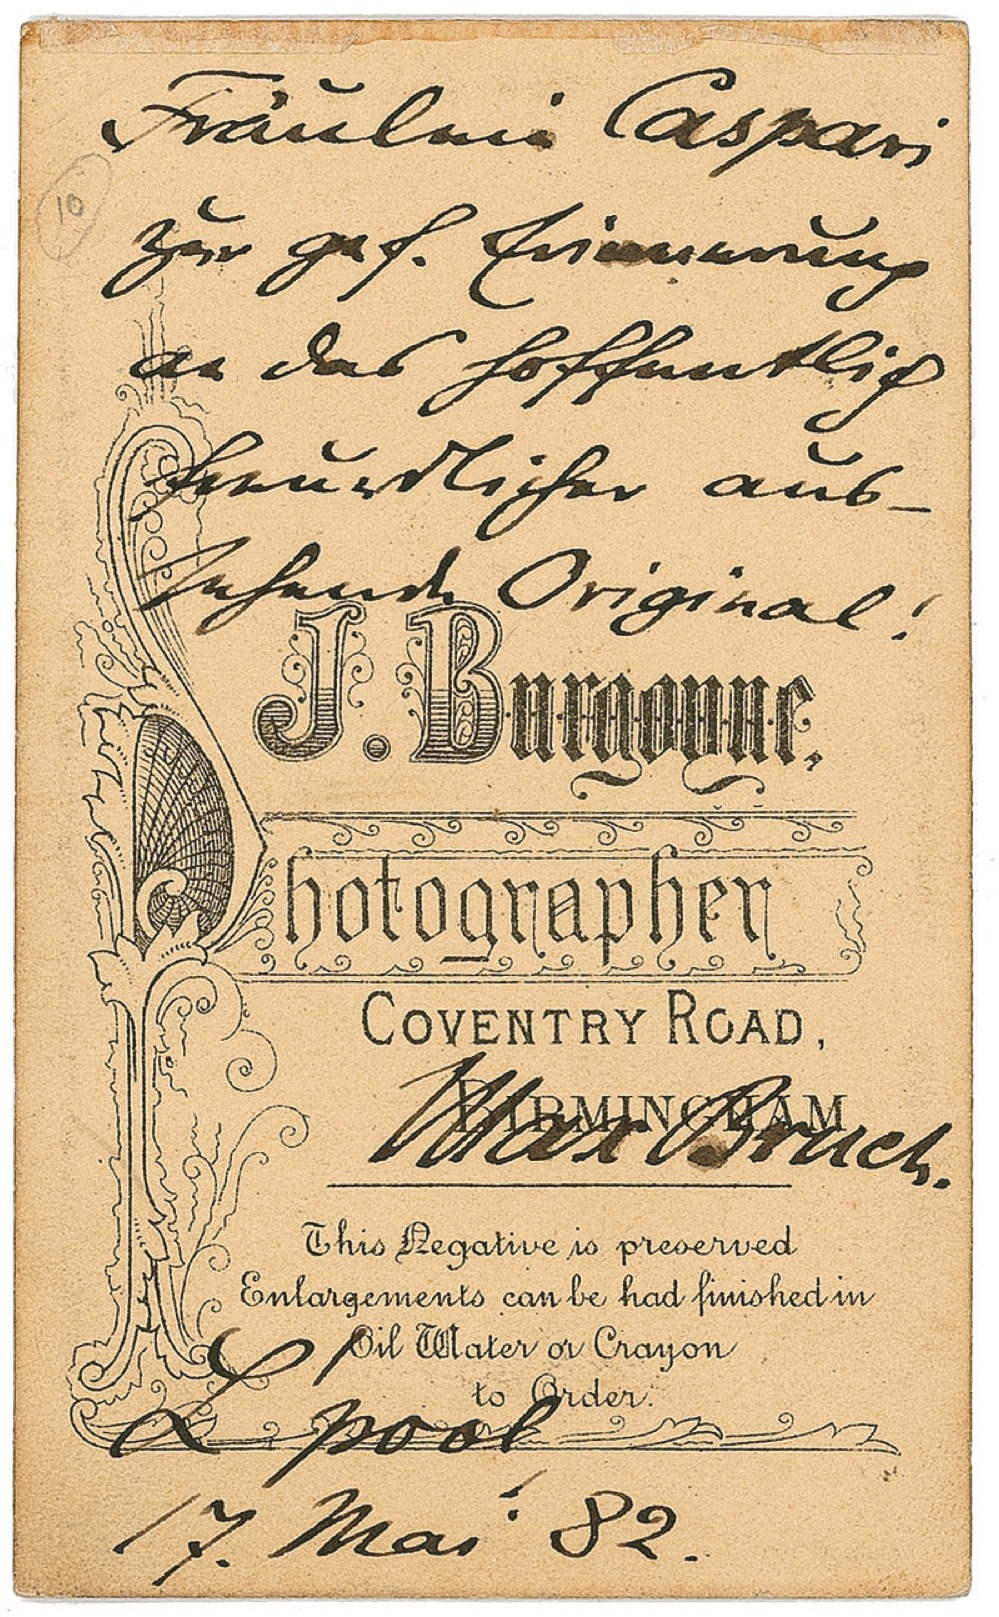 Fräulein Caspari
10
zur gef. Erinnerung
an das hoffentlich
freundlicher aus-
sehende Original!
J. Burgoyne,
Photographer
COVENTRY ROAD,
BIRMINGHAM
Max Bruch.
This Negative is preserved
Enlargements can be had finished in
Oil Water or Crayon
to Order.
L'pool
17. Mai 82.